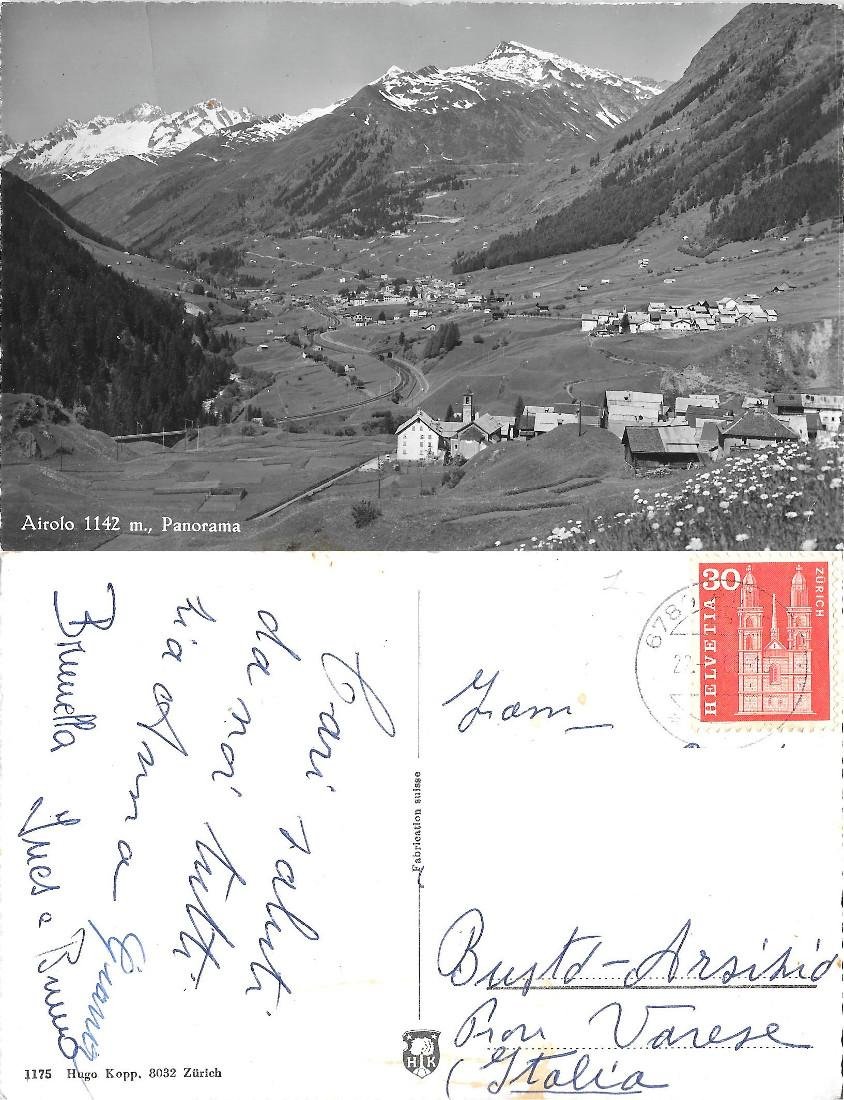 Airolo 1142 m., Panorama
Cari saluti
da noi tutti
zia Anna
Brunella Ines e Bruno
Fabrication suisse
30
HELVETIA
ZÜRICH
678
Fam
Busto-Arsizio
Prov Varese
(Italia
HK
1175 Hugo Kopp, 8032 Zürich